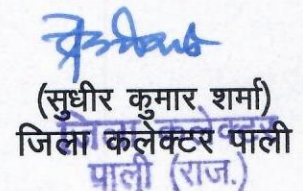 (सुधीर कुमार शर्मा)
जिला कलेक्टर पाली
जिला कलेक्टर
पाली (राज.)